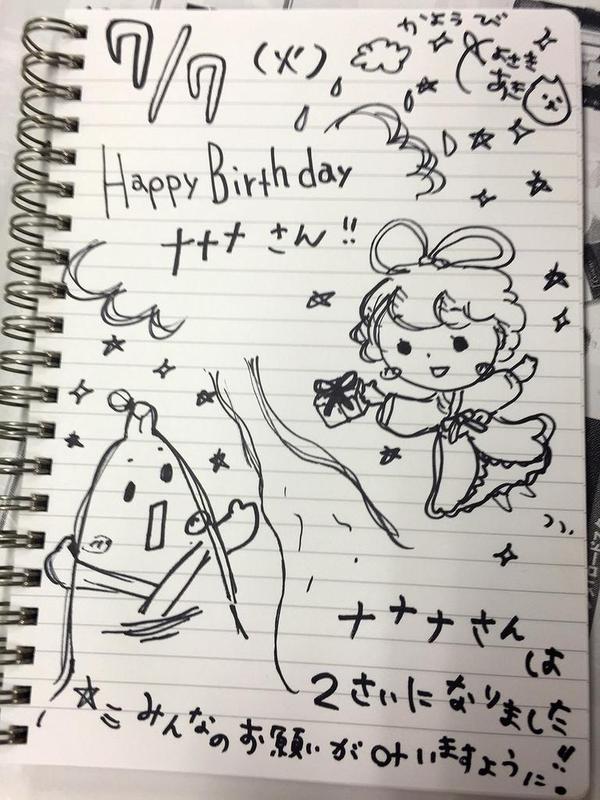 かようび
7/7 (火)
よさき
あき
Happy Birthday
ナナナ さん!!
ナナナ さん
は
2さいになりました!!
みんなのお願いが叶いますように!